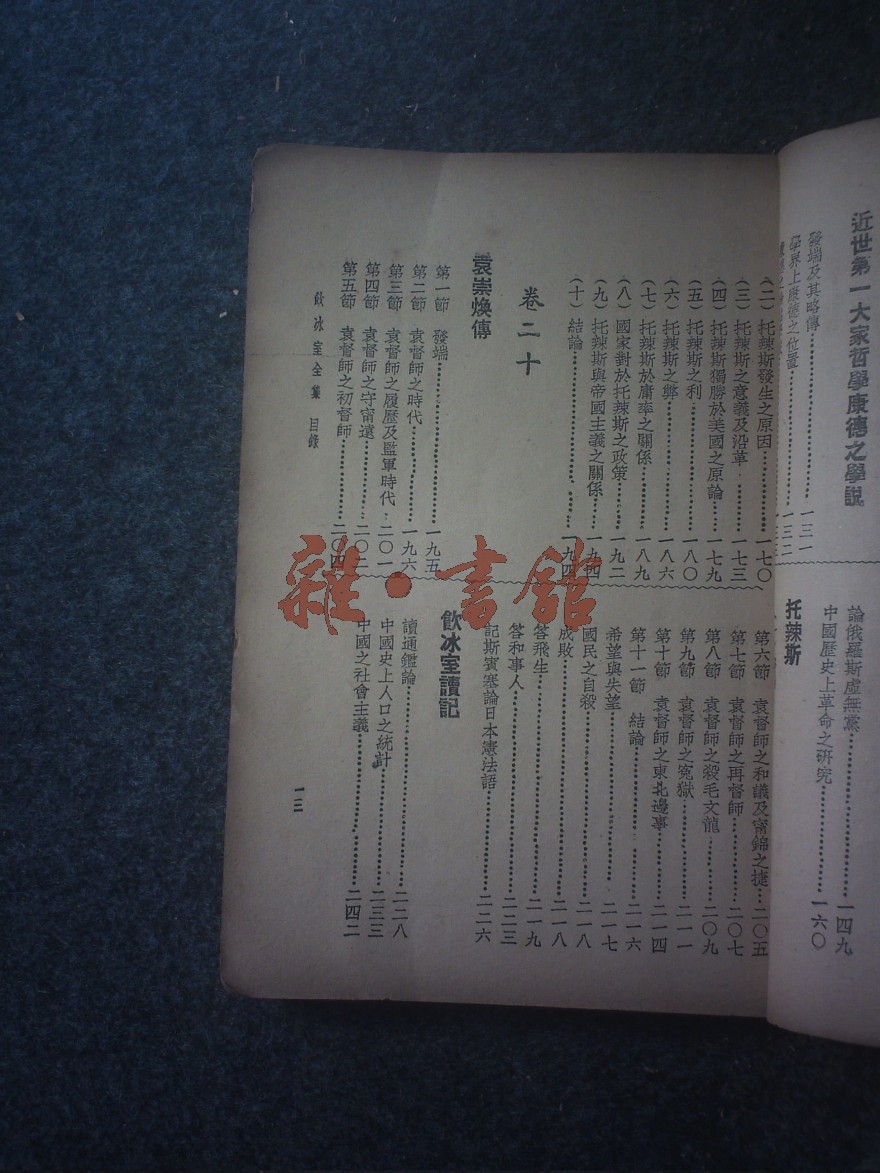 近世第一大家哲學康德之學說
發端及其略傳………一三一
學界上康德之位置………一三二
論俄羅斯虛無黨………一四九
中國歷史上革命之研究………一六〇
托辣斯
(二)托辣斯發生之原因………一七〇
(三)托辣斯之意義及沿革………一七三
(四)托辣斯獨勝於美國之原論………一七九
(五)托辣斯之利………一八〇
(六)托辣斯之弊………一八六
(七)托辣斯於庸率之關係………一八九
(八)國家對於托辣斯之政策………一九二
(九)托辣斯與帝國主義之關係………一九四
(十)結論………一九四
卷二十
袁崇煥傳
第一節 發端………一九五
第二節 袁督師之時代………一九六
第三節 袁督師之履歷及監軍時代………二〇一
第四節 袁督師之守甯遠………二〇二
第五節 袁督師之初督師………二〇四
第六節 袁督師之和議及甯錦之捷………二〇五
第七節 袁督師之再督師………二〇七
第八節 袁督師之殺毛文龍………二〇九
第九節 袁督師之冤獄………二一一
第十節 袁督師之東北邊事………二一四
第十一節 結論………二一六
希望與失望………二一七
國民之自殺………二一八
成敗………二一八
答飛生………二一九
答和事人………二二三
記斯賓塞論日本憲法語………二二六
飲冰室讀記
讀通鑑論………二二八
中國史上人口之統計………二三三
中國之社會主義………二四二
飲冰室全集 目錄
一三
雜·書館